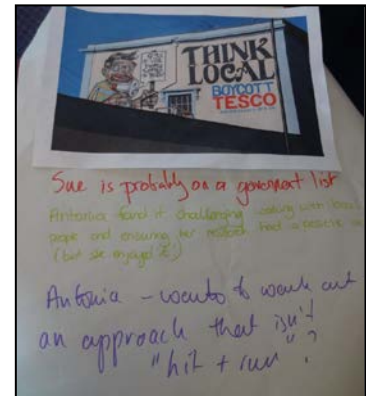 THINK
LOCAL
BOYCOTT
TESCO
Sue is probably on a goverment list
Antonia found it challenging working with local
people and ensuring her research had a positive
(but she enjoyed it!)
Antonia - wants to work out
an approach that isn't
"hit + run"?